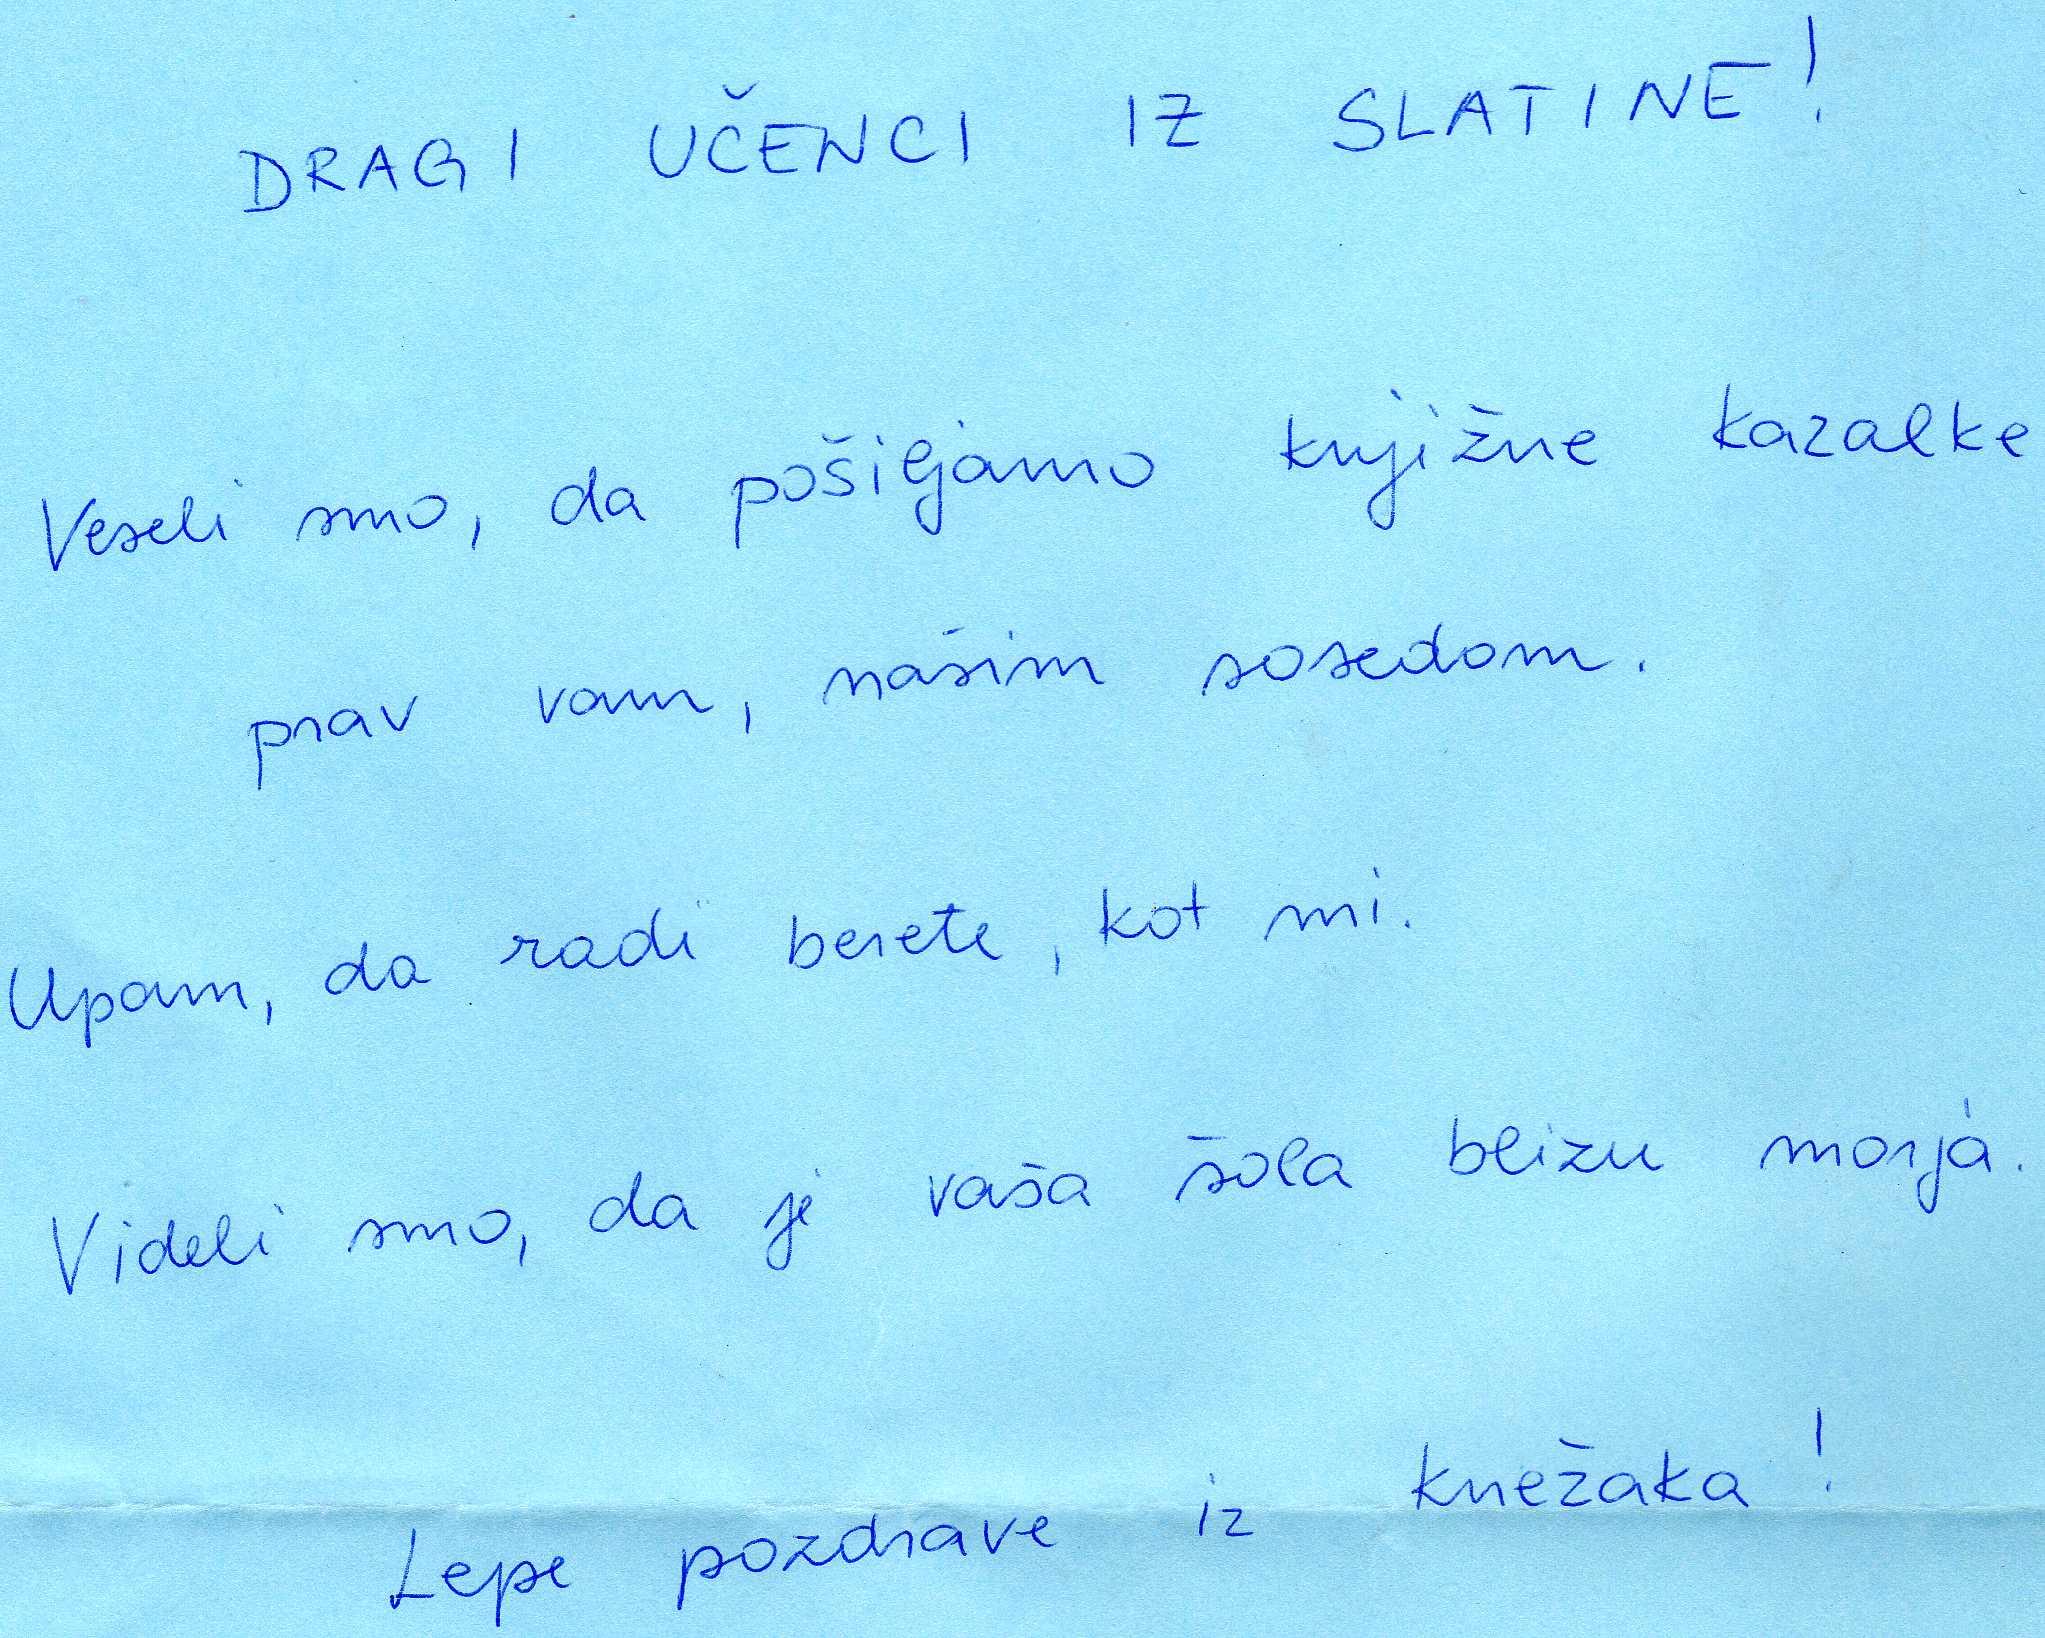 DRAGI UČENCI IZ SLATINE!
Veseli smo, da pošiljamo knjižne kazalke
prav vam, našim sosedom.
Upam, da radi berete, kot mi.
Videli smo, da je vaša šola blizu morja.
Lepe pozdrave iz Knežaka!